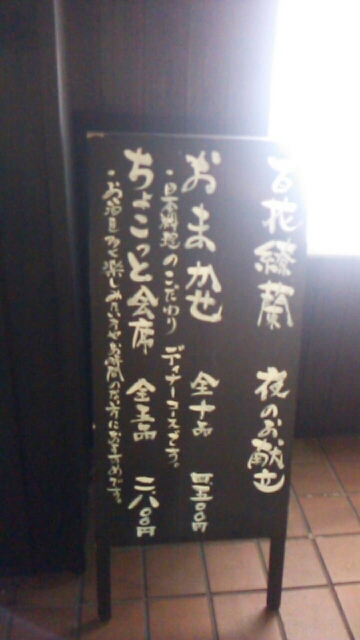 百花繚蘭 夜のお献立
おまかせ 全十品 四五〇〇円
・日本料理のこだわりディナーコースです。
ちょこっと会席 全五品 二八〇〇円
・お酒を楽しみたい方やお時間のない方におすすめです。